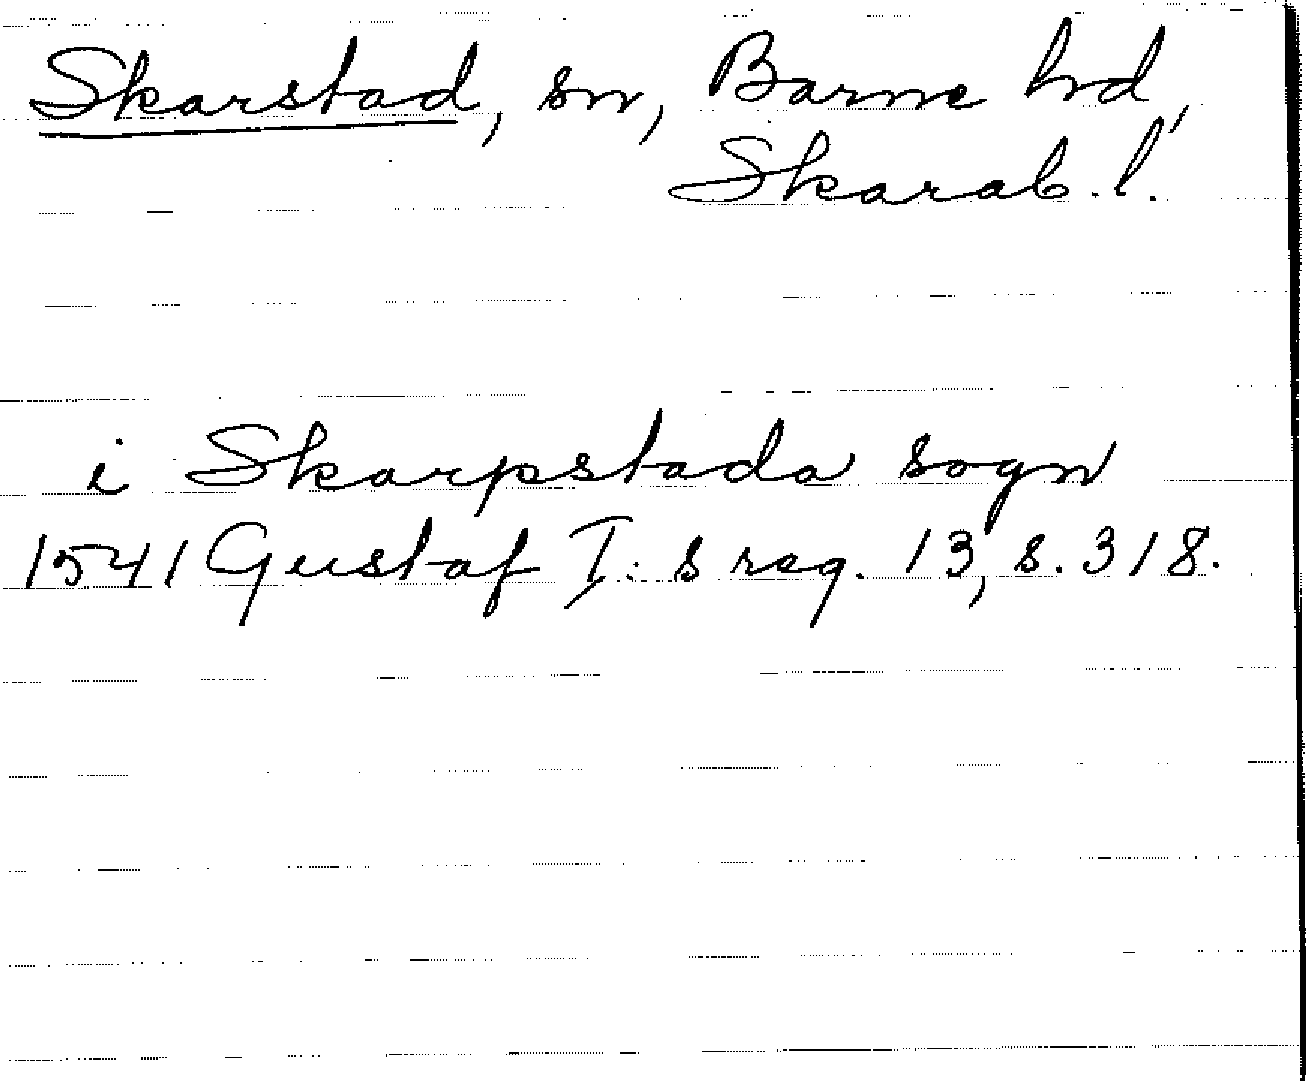 Skarstad, sn, Barne hd,
Skarab. l.
i Skarpstada sogn
1541 Gustaf I:s reg. 13, s. 318.